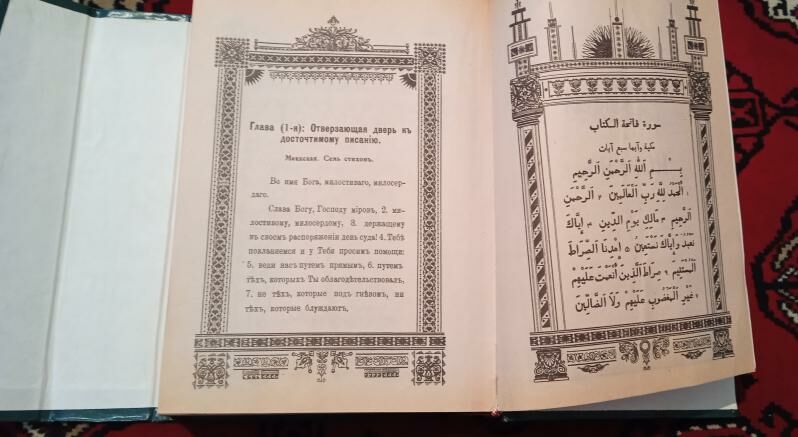 Глава (1-я): Отверзающая дверь къ
досточтимому писанію.
Меккская. Семь стиховъ.
Во имя Бога, милостиваго, милосер-
даго.
Слава Богу, Господу міровъ, 2. ми-
лостивому, милосердому, 3. держащему
въ своемъ распоряженіи день суда! 4. Тебѣ
покланяемся и у Тебя просимъ помощи:
5. веди насъ путемъ прямымъ, 6. путемъ
тѣхъ, которыхъ Ты облагодѣтельствовалъ,
7. не тѣхъ, которые подъ гнѣвомъ, ни
тѣхъ, которые блуждаютъ.
سورة فاتحة الكتاب
مكية وآيها سبع آيات
بِسْمِ اللهِ الرَّحْمَنِ الرَّحِيمِ
الْحَمْدُ لِلَّهِ رَبِّ الْعَالَمِينَ ٢ الرَّحْمَنِ
الرَّحِيمِ ٣ مَالِكِ يَوْمِ الدِّينِ ٤ إِيَّاكَ
نَعْبُدُ وَإِيَّاكَ نَسْتَعِينُ ٥ اهْدِنَا الصِّرَاطَ
الْمُسْتَقِيمَ ٦ صِرَاطَ الَّذِينَ أَنْعَمْتَ عَلَيْهِمْ
٧ غَيْرِ الْمَغْضُوبِ عَلَيْهِمْ وَلَا الضَّالِّينَ